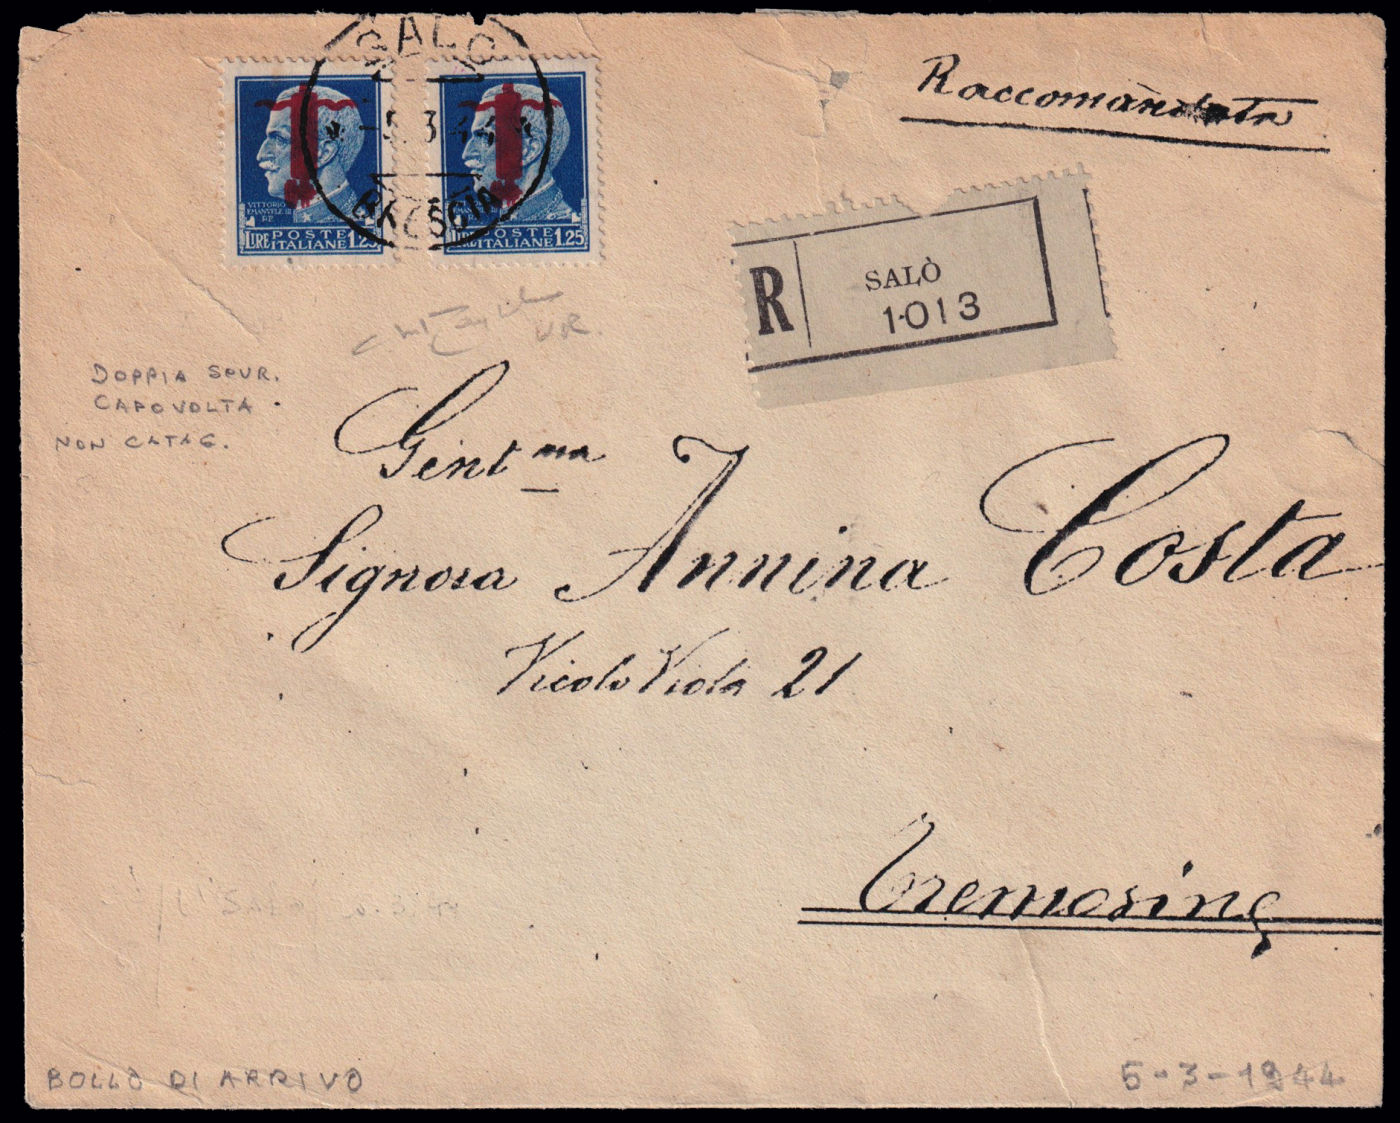 SALÒ
-5.3.44
BRESCIA
VITTORIO
EMANUELE III
RE
POSTE
LIRE ITALIANE 1.25
VITTORIO
EMANUELE III
RE
POSTE
LIRE ITALIANE 1.25
Raccomandata
R SALÒ
1-013
DOPPIA SOVR.
CAPOVOLTA
NON CATAG.
Gent.ma
Signora Annina Costa
Vicolo Viola 21
Tremosine
SALO 5.3.44
BOLLO DI ARRIVO
5-3-1944